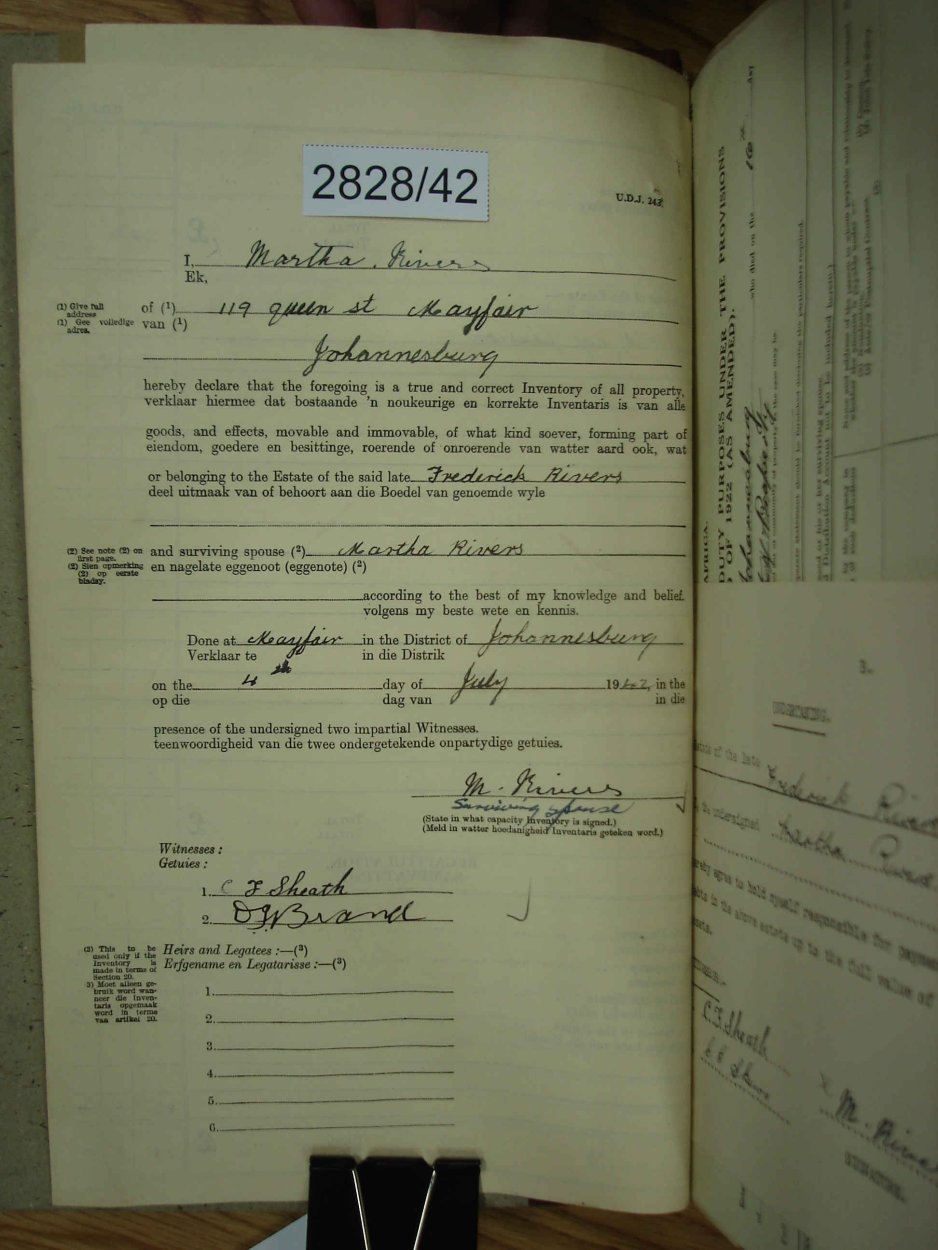 2828/42
U.D.J. 243
I, Martha. Rivers
Ek,
(1) Give full address
(1) Gee volledige adres.
of (1) 119 queen st Mayfair
van (1)
Johannesburg
hereby declare that the foregoing is a true and correct Inventory of all property,
verklaar hiermee dat bostaande 'n noukeurige en korrekte Inventaris is van alle
goods, and effects, movable and immovable, of what kind soever, forming part of
eiendom, goedere en besittinge, roerende of onroerende van watter aard ook, wat
or belonging to the Estate of the said late Frederick Rivers
deel uitmaak van of behoort aan die Boedel van genoemde wyle
(2) See note (2) on first page.
(2) Sien opmerking (2) op eerste bladsy.
and surviving spouse (2) Martha Rivers
en nagelate eggenoot (eggenote) (2)
according to the best of my knowledge and belief.
volgens my beste wete en kennis.
Done at Mayfair in the District of Johannesburg
Verklaar te in die Distrik
on the 4th day of July 1942, in the
op die dag van in die
presence of the undersigned two impartial Witnesses.
teenwoordigheid van die twee ondergetekende onpartydige getuies.
M. Rivers
Surviving spouse
(State in what capacity Inventory is signed.)
(Meld in watter hoedanigheid Inventaris geteken word.)
Witnesses :
Getuies :
1. C F Sheath
2. Brand
(3) This to be
used only if the
Inventory is
made in terms of
Section 20.
3) Moet alleen ge-
bruik word wan-
neer die Inven-
taris opgemaak
word in terme
van artikel 20.
Heirs and Legatees :—(3)
Erfgename en Legatarisse :—(3)
1.
2.
3.
4.
5.
6.
AFRICA.
DUTY PURPOSES UNDER THE PROVISIONS
OF 1922 (AS AMENDED).
who died on the 16th day
3.
UNDERTAKING.
Estate of the late Frederick Rivers
the undersigned Martha Rivers
hereby agree to hold myself responsible for
debts in the above estate up to the full value of
assets.
C.F. Sheath
M. Rivers
SIGNATURE.